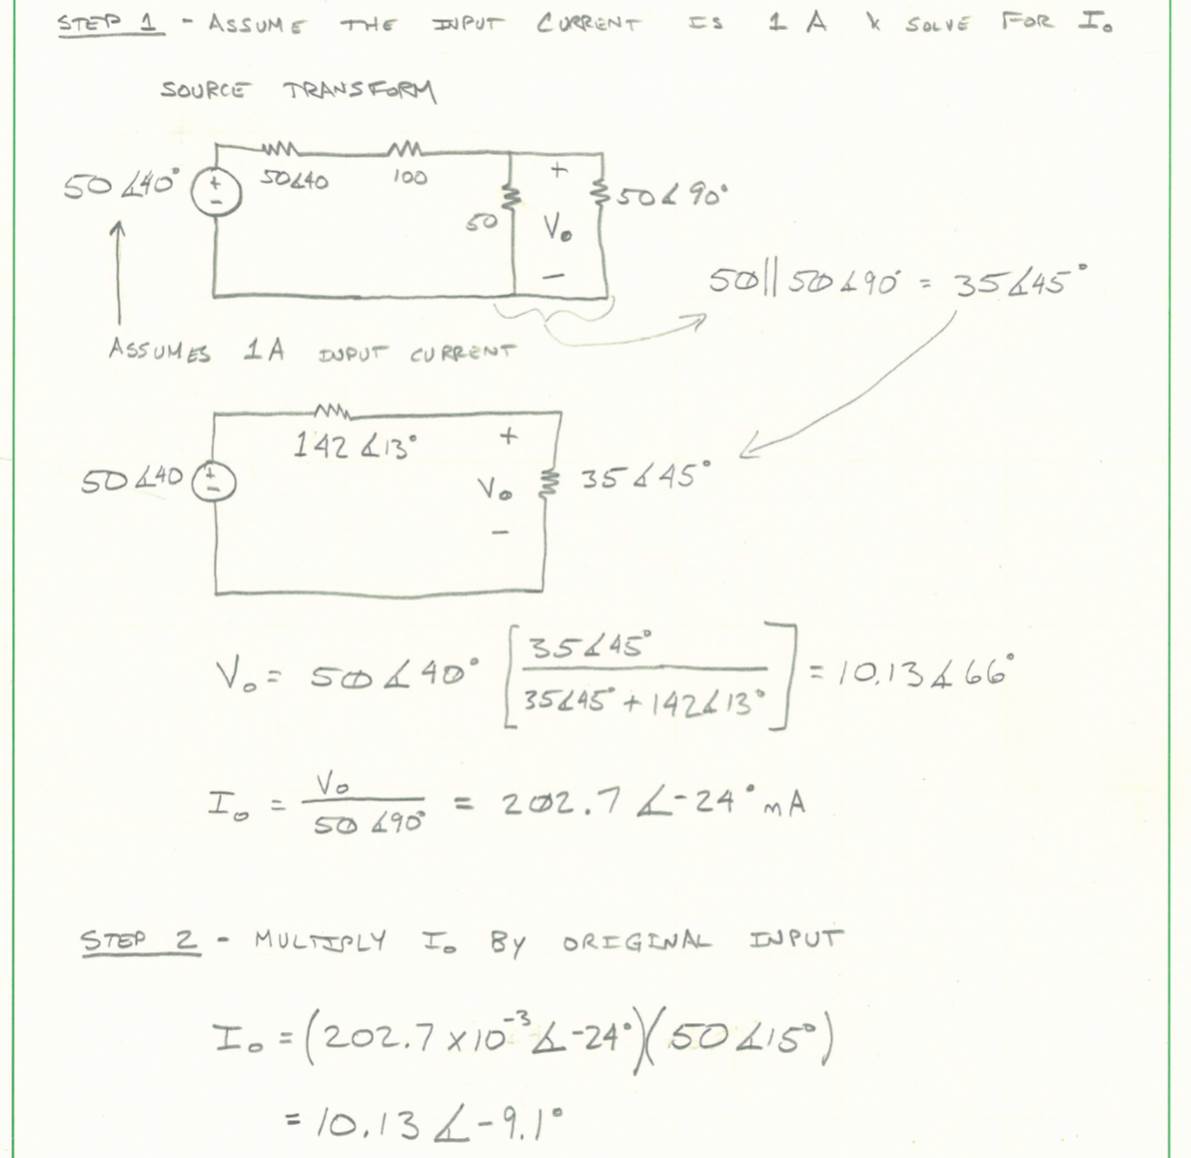 STEP 1 - ASSUME THE INPUT CURRENT IS 1 A & SOLVE FOR I₀
SOURCE TRANSFORM
50∠40°
+
-
50∠40
100
50
+
V₀
-
50∠90°
50||50∠90° = 35∠45°
ASSUMES 1A INPUT CURRENT
50∠40
+
-
142∠13°
+
V₀
-
35∠45°
V₀ = 50∠40° [35∠45° / 35∠45° + 142∠13°] = 10.13∠66°
I₀ = V₀ / 50∠90° = 202.7∠-24° mA
STEP 2 - MULTIPLY I₀ BY ORIGINAL INPUT
I₀ = (202.7 x10⁻³∠-24°)(50∠15°)
= 10.13∠-9.1°